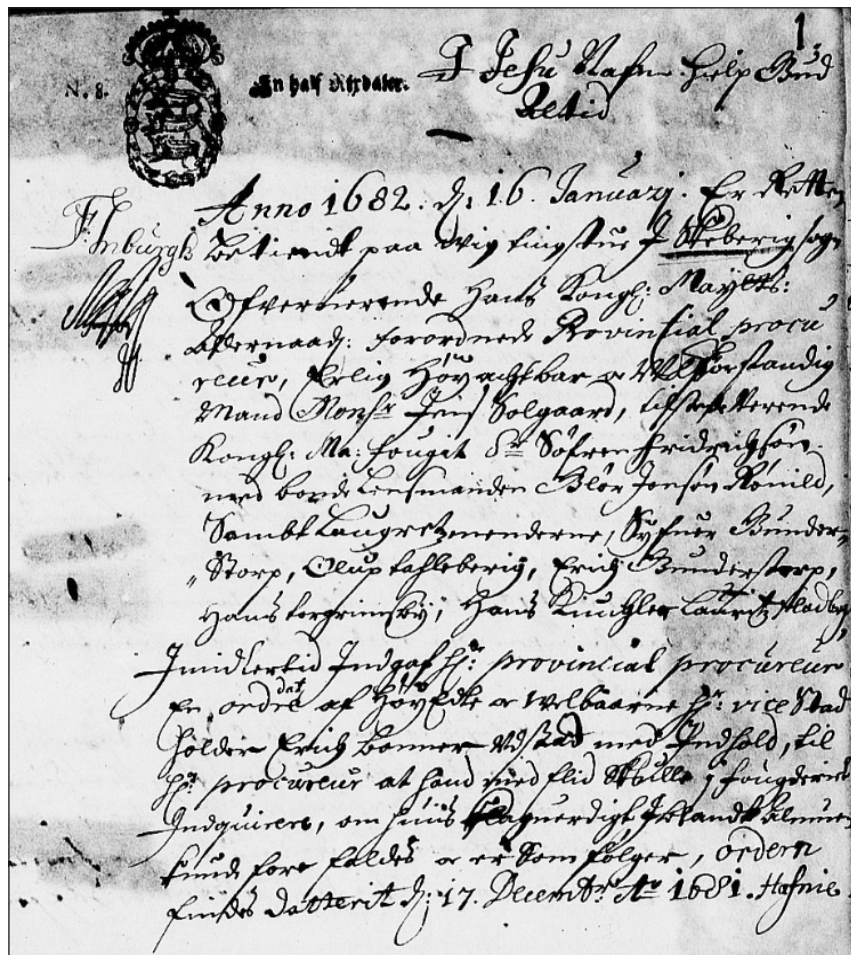 1
N. 8.
En half Rixdaler.
I Jesu Nafn hielp Gud
Altid
Anno 1682. d: 16 Januarj. Er Retten
Betiendt paa wig tingstue J Skeberig sogn
Ofververende Hans Kongl: Mayttz:
forordnede Provincial procu
reur, Erlig Höyachtbar oc Welforstandig
Mand Monsr Jens Solgaard, verende
Kongl: Ma: fougit Sr Söfren Fridrichsön
med bonde Lensmanden Jonsön Rönild,
Sambt Laugretzmenderne, Gunder-
"Storp, Oluf Kahleberig, Erich Gunderstorp,
Hans torgrimsby, Hans Lauritz
Imidlertid Indgaf Hr: provincial procureur
En ordre dat af HöyEdle oc Welbaarne Hr: vice Stad
holder Erich Banner Vdstæd med Indhold, til
Hr: procureur at hand med flid Skulle j fougderiet
Indquirere, om huis Klaguerdigt Iblandt Almuen
kunde fore faldes oc er Som fölger, ordern
findes datterit d: 17. Decembr Ao 1681. Hafnie.